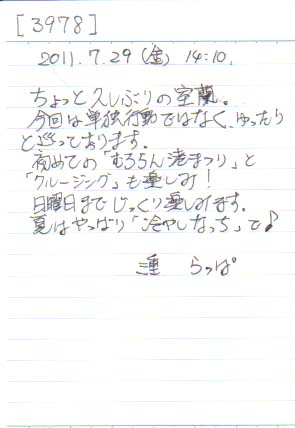 [3978]
2011.7.29(金) 14:10.
ちょっと久しぶりの室蘭。
今回は単独行動ではなく、ゆったり
と巡っております。
初めての「むろらん港まつり」と
「クルージング」も楽しみ!
日曜日までじっくり楽しみます。
夏はやっぱり「冷やしなっち」で♪
三重 らっぱ